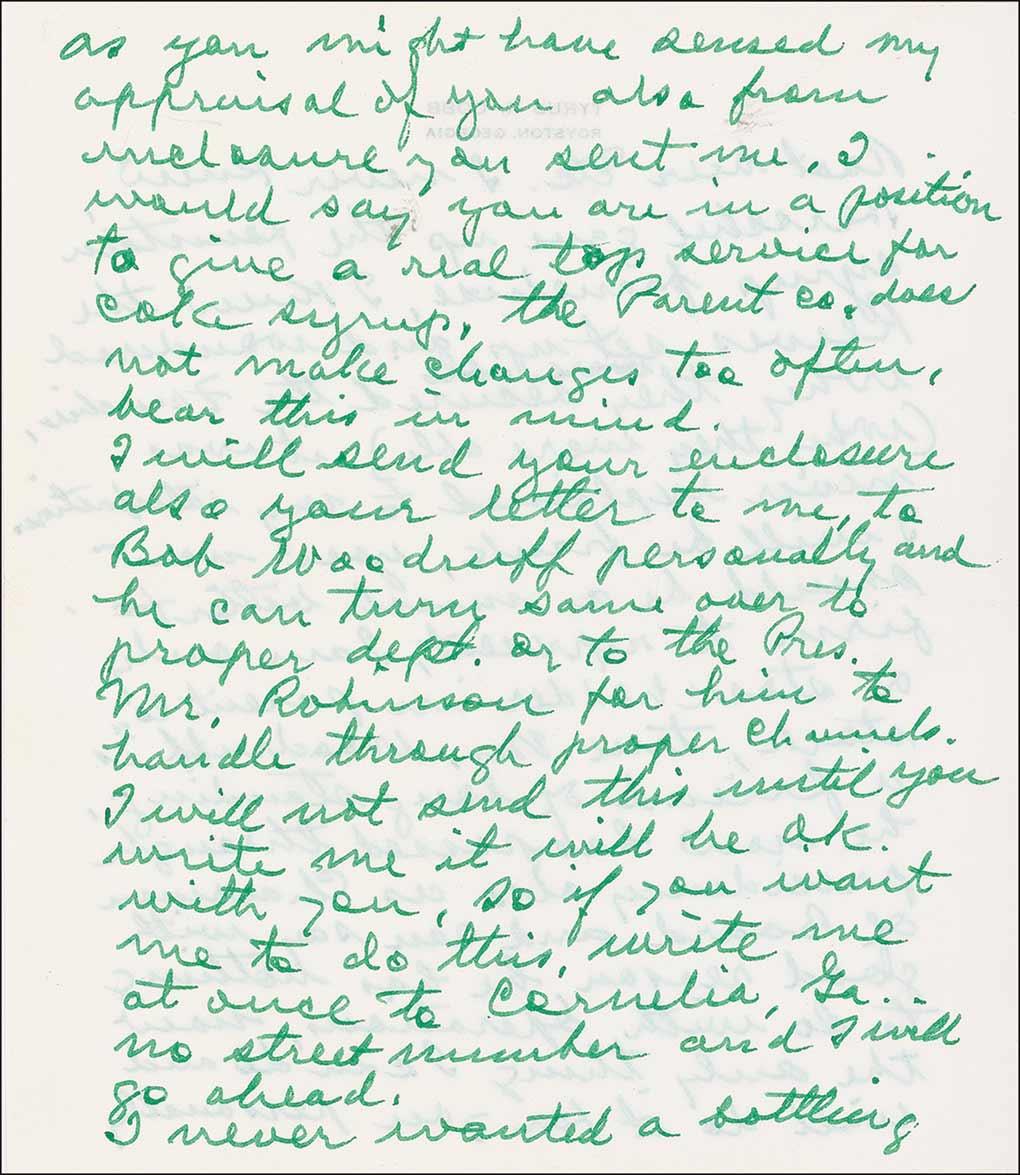 as you might have sensed my
appraisal of you also from
inclosure you sent me, I
would say you are in a position
to give a real top service for
coke syrup, the Parent co. does
not make changes too often,
bear this in mind.
I will send your enclosure
also your letter to me, to
Bob Woodruff personally and
he can turn same over to
proper dept. or to the Pres.
Mr. Robinson for him to
handle through proper channels.
I will not send this until you
write me it will be O.K.
with you, so if you want
me to do this, write me
at once to Cornelia, Ga..
no street number and I will
go ahead.
I never wanted a bottling